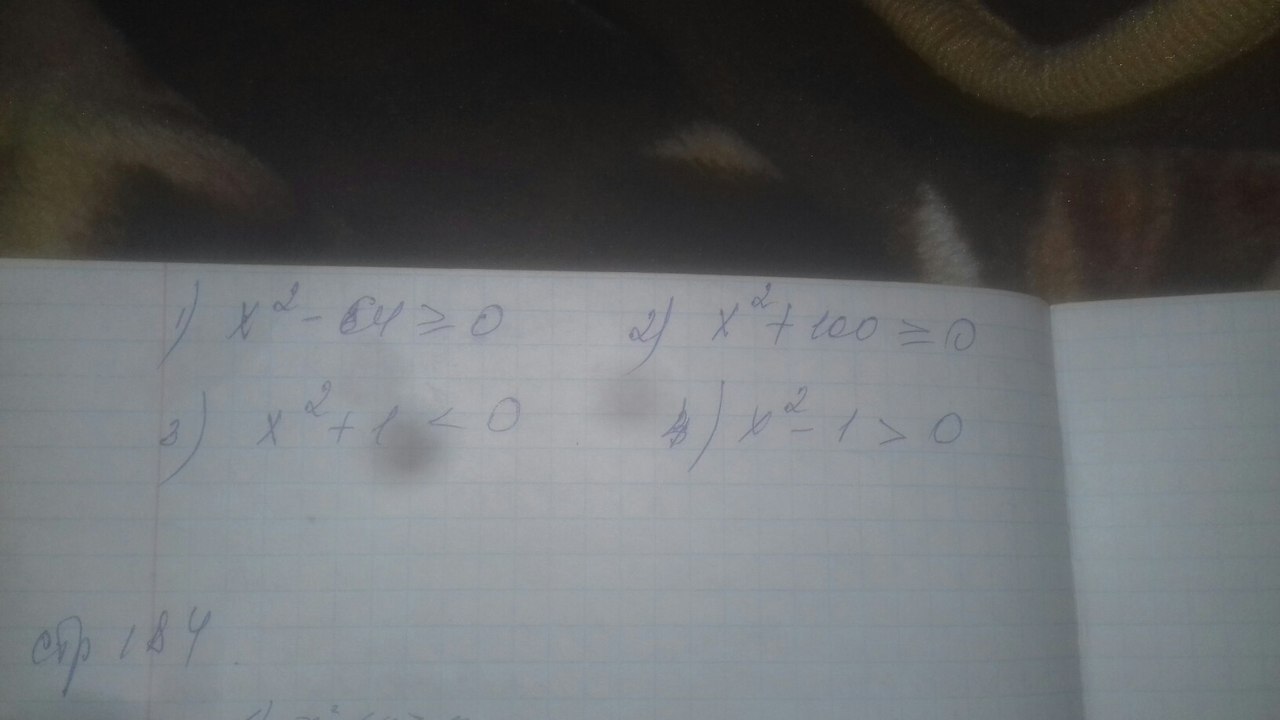 1) x² - 64 ≥ 0 2) x² + 100 ≥ 0
3) x² + 1 < 0 4) x² - 1 > 0
стр 184